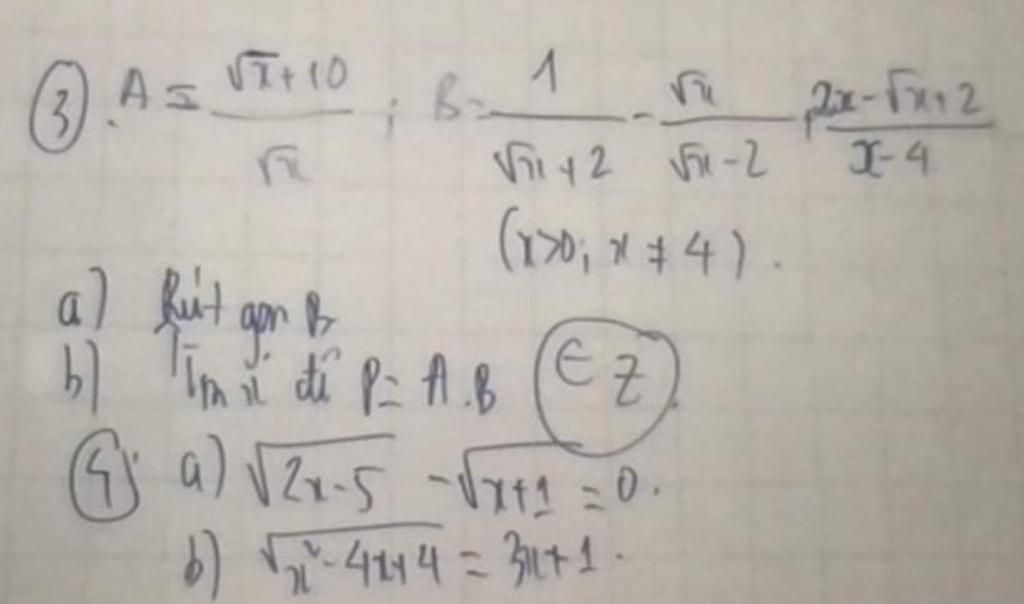 ③. A = (√x + 10)/√x ; B = 1/(√x + 2) - √x/(√x - 2) + (2x - √x + 2)/(x - 4)
(x>0; x ≠ 4).
a) Rút gọn B
b) Tìm x để P = A.B ∈ Z.
④. a) √(2x - 5) - √(x + 1) = 0.
b) √(x² - 4x + 4) = 3x + 1.